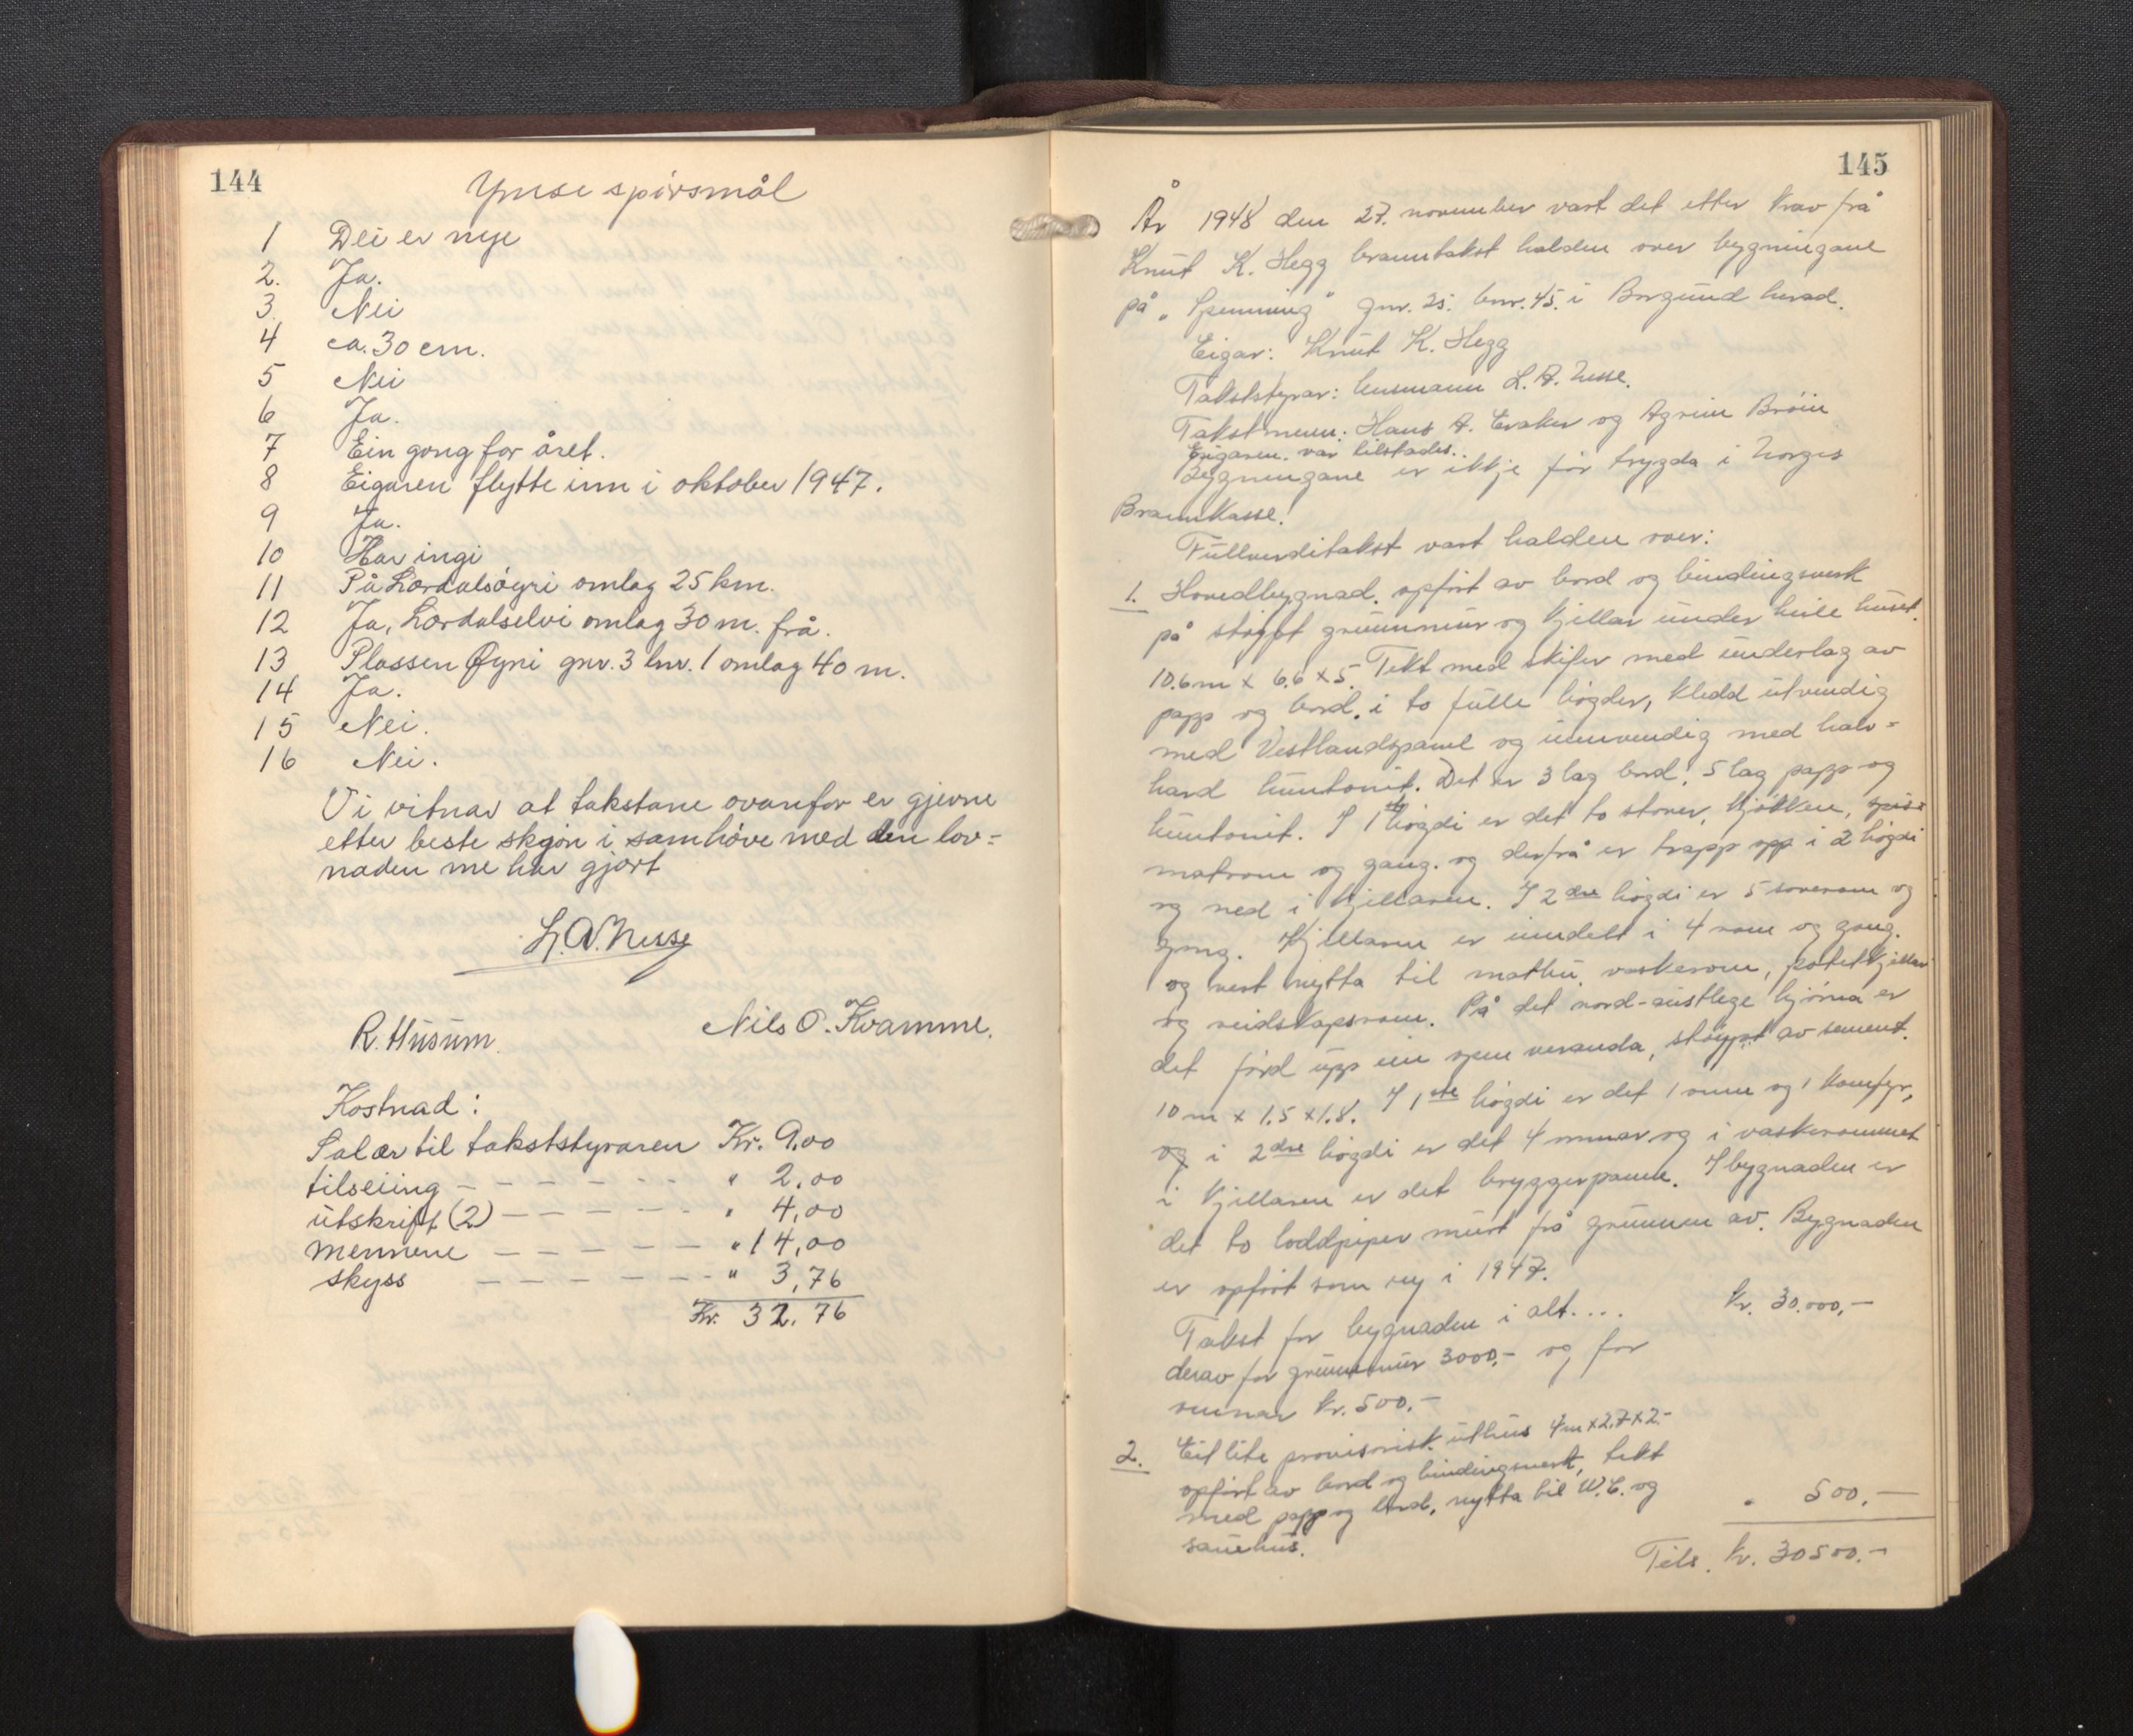 144
Ymse spörsmål
1 Dei er nye
2. Ja.
3. Nei
4 ca. 30 cm.
5 Nei
6 Ja.
7 Ein gong for året.
8 Eigaren flytte inn i oktober 1947.
9 Ja.
10 Har ingi
11 På Lærdalsöyri omlag 25 km.
12 Ja, Lærdalselvi omlag 30 m. frå.
13 Plassen Öyni gnr. 3 bnr. 1 omlag 40 m.
14 Ja.
15 Nei.
16 Nei.
Vi vitnar at takstane ovanfor er gjevne
etter beste skjön i samhöve med den lov-
naden me har gjort
L. A. Nesse
R. Husum. Nils O. Kvamme.
Kostnad:
Salær til takststyraren Kr. 9,00
tilseiing - - - - - - " 2,00
utskrift (2) - - - - - " 4,00
mennene - - - - - - " 14,00
skyss - - - - - - " 3,76
Kr. 32,76
145
År 1948 den 27. november vart det etter krav frå
Knut K. Hegg branntakst halden over bygningane
på "Spenning" gnr. 25. bnr. 45. i Borgund herad.
Eigar: Knut K. Hegg
Takststyrar: lensmann L. A. Nesse.
Takstmenn: Hans A. Eraker og Agrim Bröin
Eigaren. var tilstades..
Bygningane er ikkje för trygda i Norges
Brannkasse.
Fullverditakst vart halden over:
1. Hovedbygnad. opfört av bord og bindingsverk
på stöypt grunnmur og kjellar under heile huset.
10.6 m x 6.6 x 5. Tekt med skifer med underlag av
papp og bord. i to fulle högder, kledd utvendig
med Vestlandspanel og innvendig med halv-
hard huntonit. Det er 3 lag bord, 5 lag papp og
huntonit. I 1ste högdi er det to stover, kjökken, spise
matrom og gang. og derfrå er trapp opp i 2 högdi
og ned i kjellaren. I 2dre högdi er 5 soverom og
gang. Kjellaren er inndelt i 4 rom og gang.
og vert nytta til matbu, vaskerom, potetkjellar
og reidskapsrom. På det nord-austlege hjörna er
det förd upp ein open veranda, stöypt av sement.
10 m x 1.5 x 1.8. I 1ste högdi er det 1 omn og 1 komfyr,
og i 2dre högdi er det 4 omnar og i vaskerommet
i kjellaren er det bryggerpanne. I bygnaden er
det to loddpiper murt frå grunnen av. Bygnaden
er opfört som ny i 1947.
Takst for bygnaden i alt.... Kr. 30.000,-
derav for grunnmur 3000,- og for
omnar kr. 500.-
2. Eit lite provisorisk uthus 4 m x 2.7 x 2.-
opfört av bord og bindingsverk, tekt
med papp og bord, nytta til W.C. og
sauehus. " 500,-
Tils. kr. 30500.-